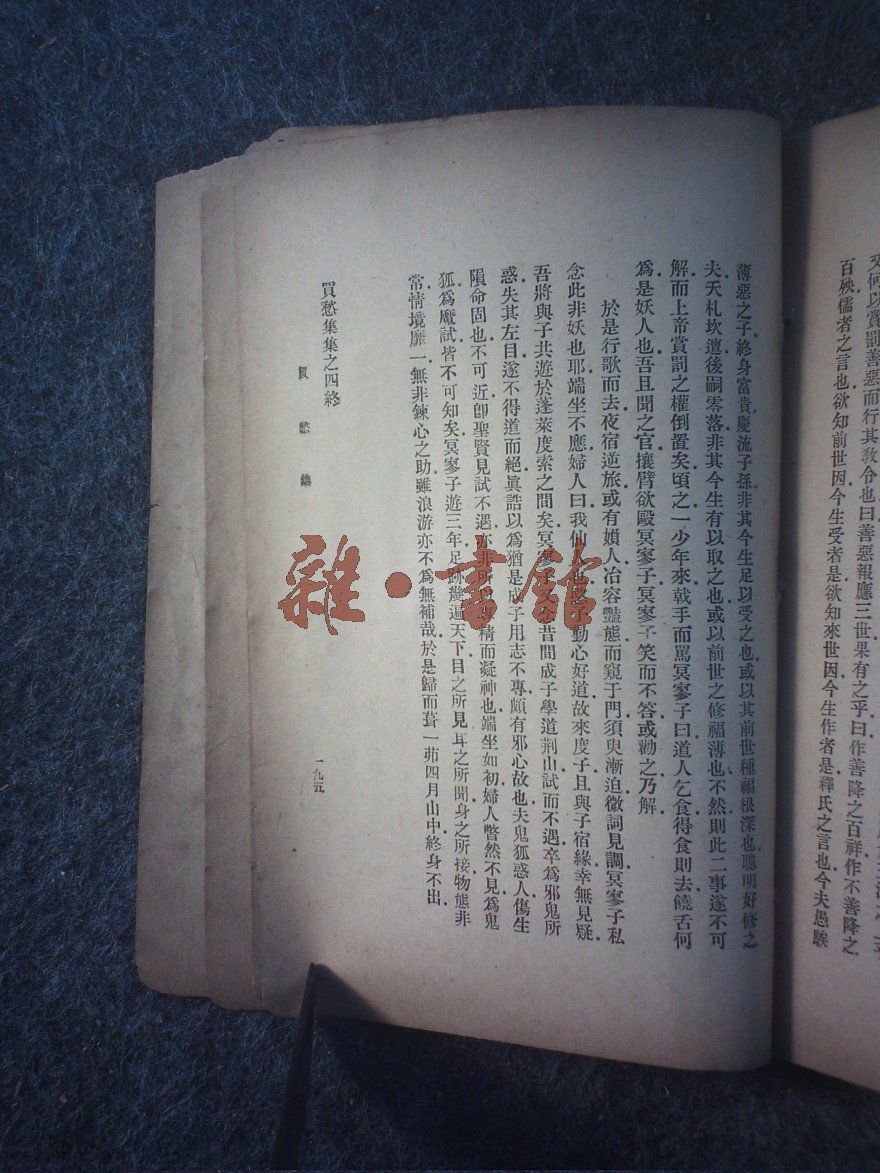 又何以賞罰善惡而行其敎令也曰善惡報應三世果有之乎曰作善降之百祥作不善降之
百殃儒者之言也欲知前世因今生受者是欲知來世因今生作者是釋氏之言也今夫愚騃
薄惡之子終身富貴慶流子孫非其今生足以受之也或以其前世種福根深也聰明好修之
夫夭札坎壈後嗣零落非其今生有以取之也或以前世之修福薄也不然則此二事遂不可
解而上帝賞罰之權倒置矣頃之一少年來戟手而罵冥寥子曰道人乞食得食則去饒舌何
爲是妖人也吾且聞之官攘臂欲毆冥寥子冥寥子笑而不答或勸之乃解
於是行歌而去夜宿逆旅或有婦人冶容豔態而窺于門須臾漸迫微詞見調冥寥子私
念此非妖也耶端坐不應婦人曰我仙人也子動心好道故來度子且與子宿緣幸無見疑
吾將與子共遊於蓬萊度索之間矣冥寥子又念昔間成子學道荆山試而不遇卒爲邪鬼所
惑失其左目遂不得道而絕眞誥以爲猶是成子用志不專頗有邪心故也夫鬼狐惑人傷生
隕命固也不可近卽聖賢見試不遇亦非所以精而凝神也端坐如初婦人瞥然不見爲鬼
狐爲魔試皆不可知矣冥寥子遊三年足跡幾遍天下目之所見耳之所聞身之所接物態非
常情境靡一無非鍊心之助雖浪游亦不爲無補哉於是歸而葺一茆四月山中終身不出
買愁集集之四終
買愁集
一九五
雜·書館